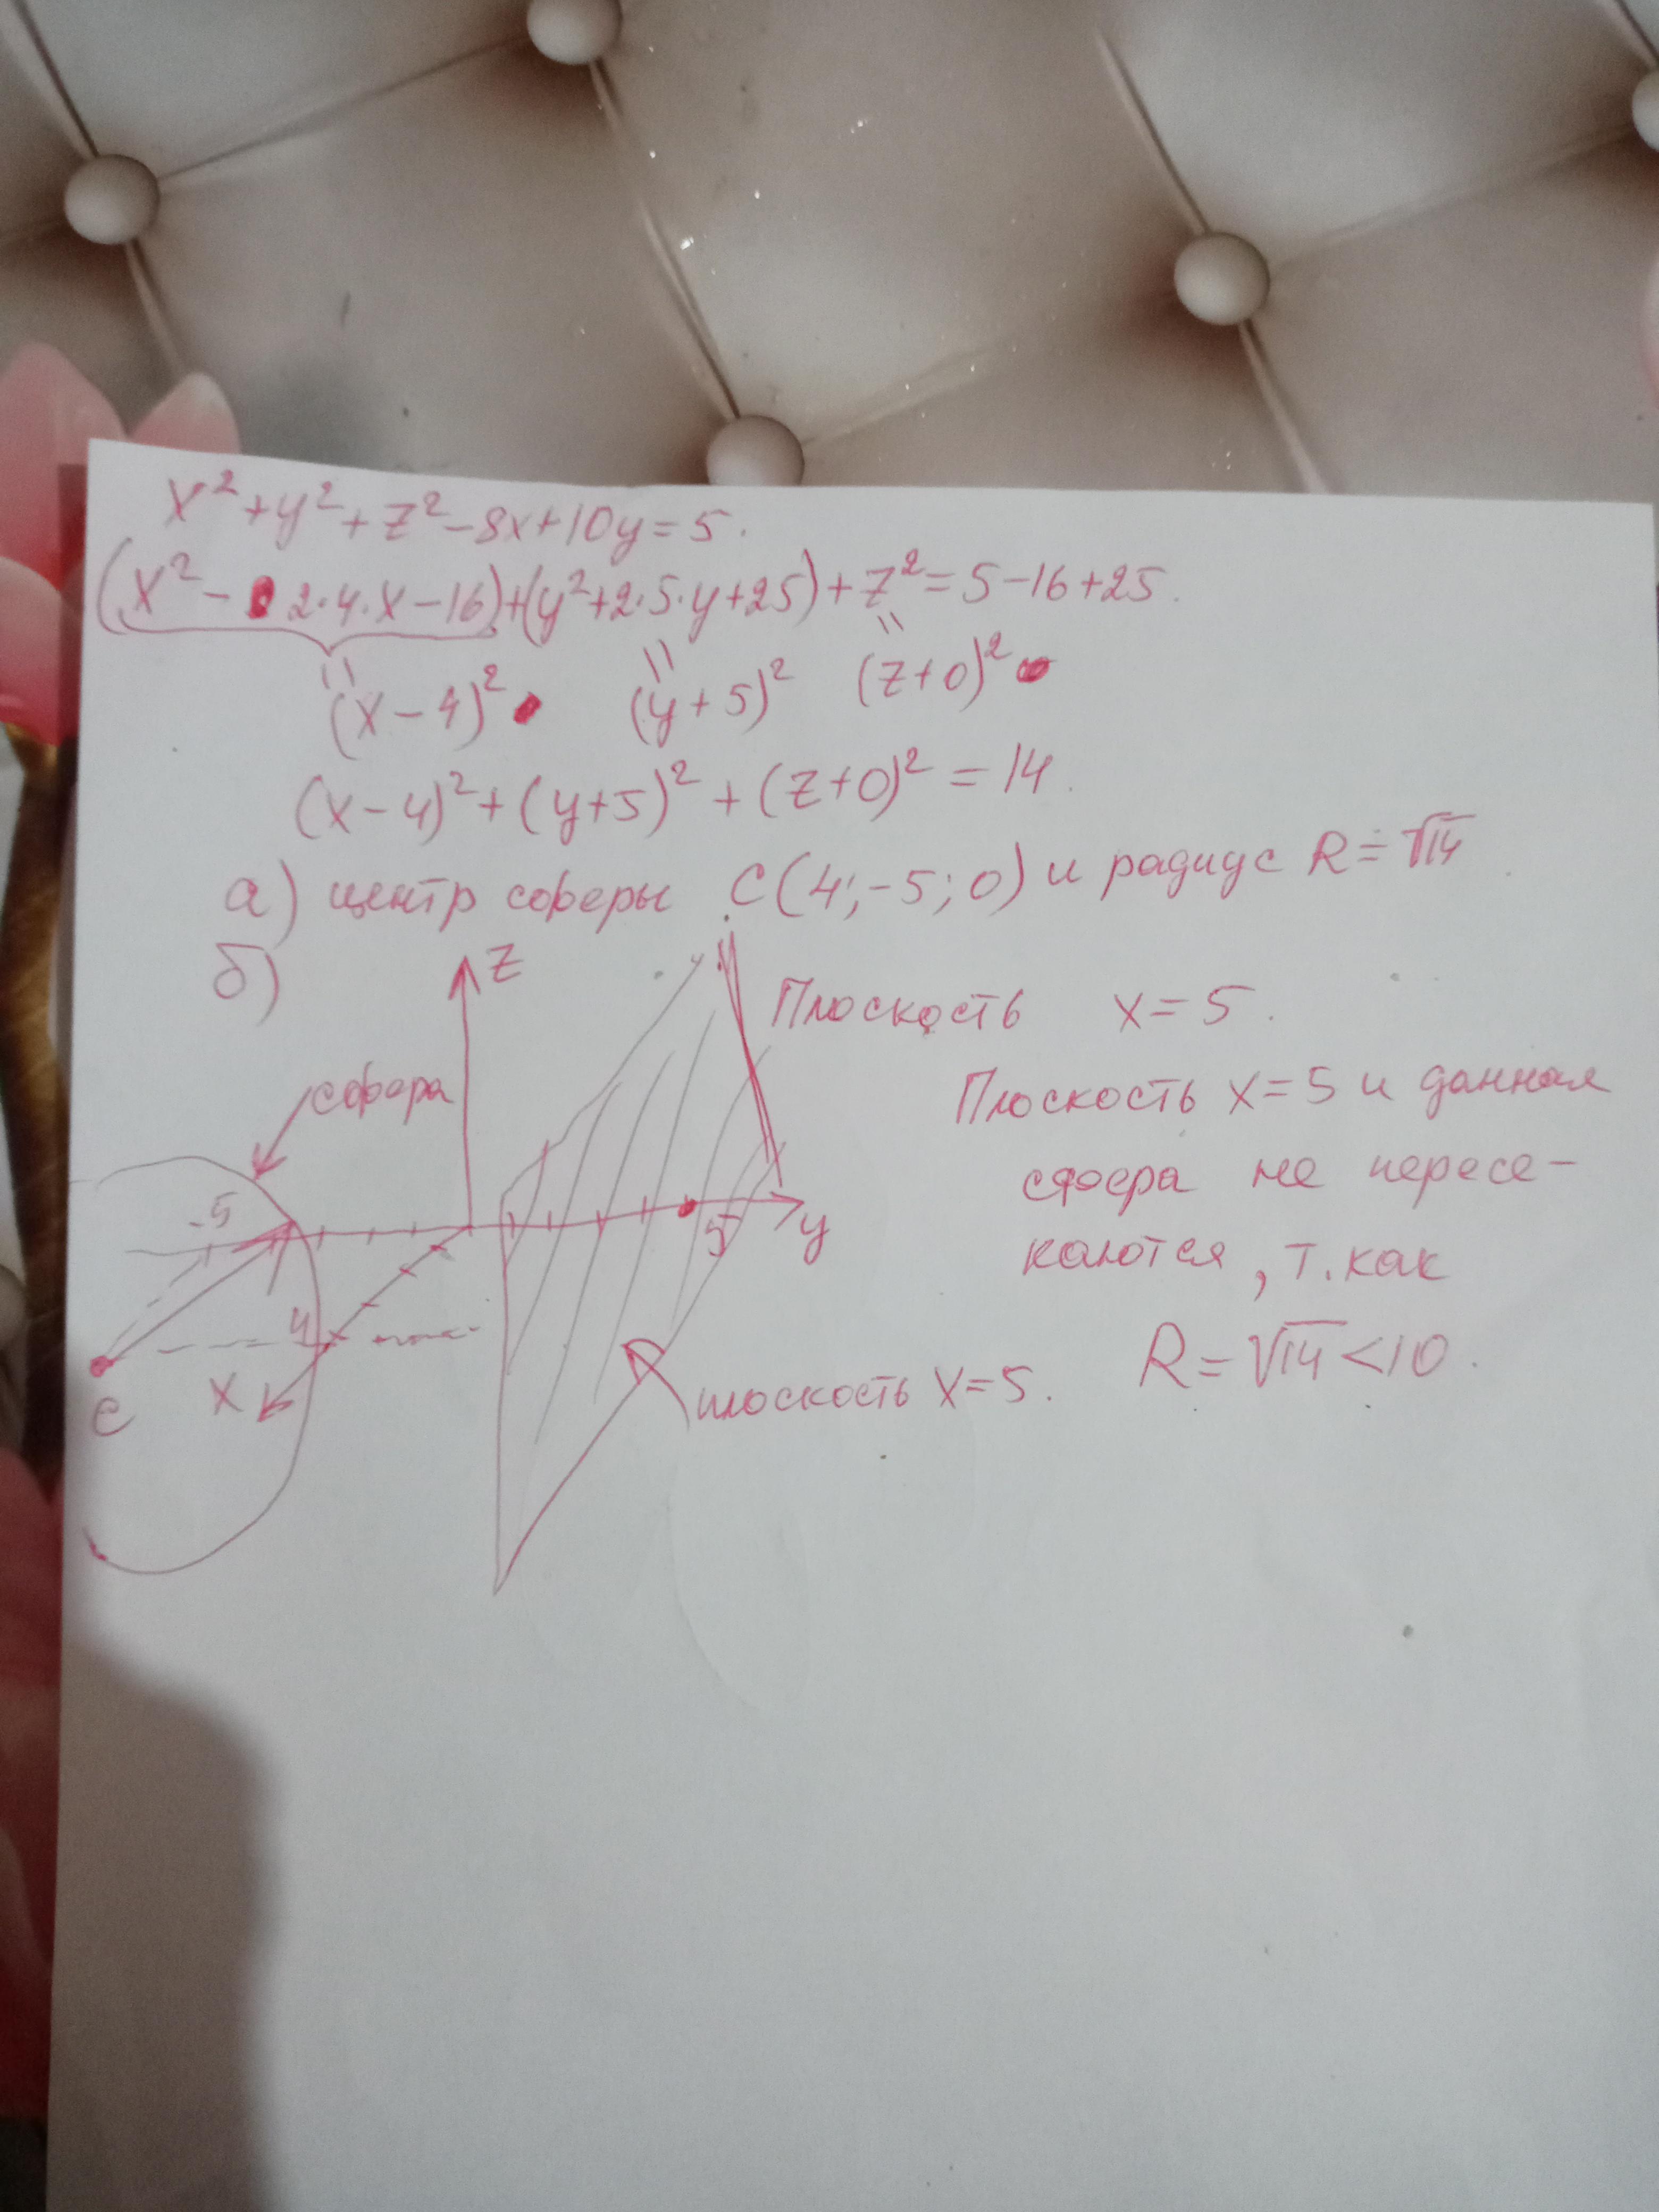 x² + y² + z² - 8x + 10y = 5.
(x² - 2·4·x - 16) + (y² + 2·5·y + 25) + z² = 5 - 16 + 25.
(x - 4)² (y + 5)² (z + 0)²
(x - 4)² + (y + 5)² + (z + 0)² = 14.
а) центр сферы C(4; -5; 0) и радиус R = √14
б)
z
Плоскость x = 5.
сфера
Плоскость x = 5 и данная
сфера не пересе-
каются, т. как
-5
5
y
4
R = √14 < 10.
x
C
плоскость x = 5.